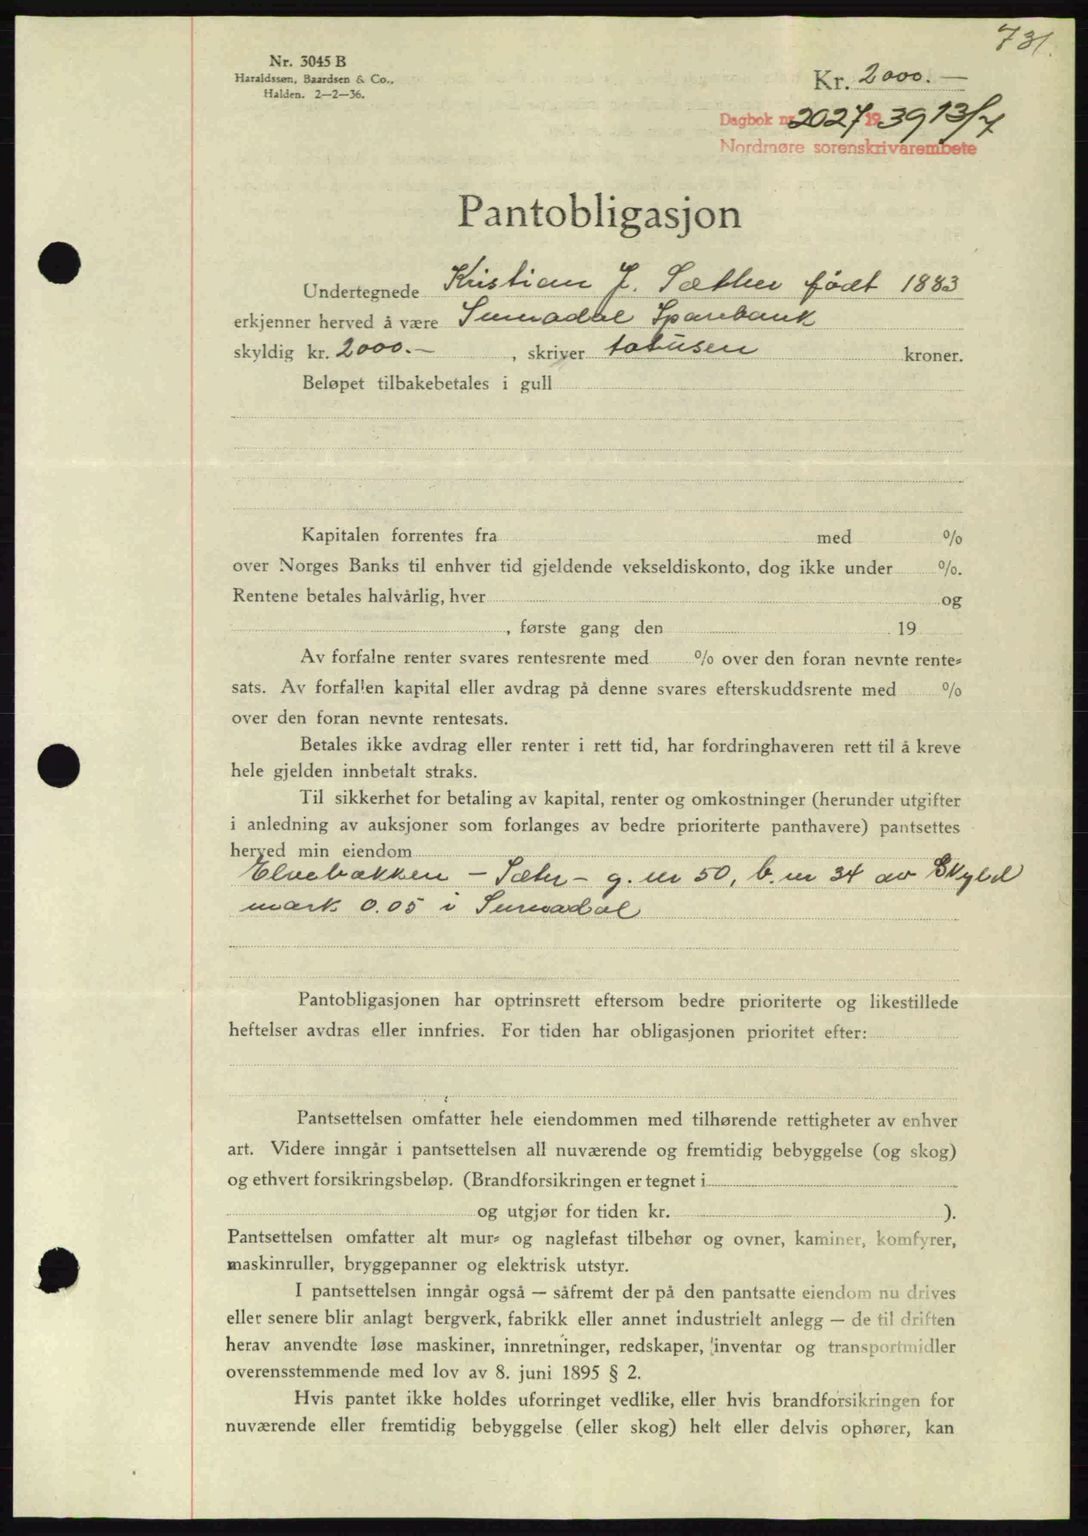 731.
Nr. 3045 B
Haraldssøn, Baardsen & Co.,
Halden. 2—2—36.
Kr. 2000.—
Dagbok nr. 2027 1939 13/7
Nordmøre sorenskrivarembete
Pantobligasjon
Undertegnede Kristian J. Sæther født 1883
erkjenner herved å være Surnadal Sparebank
skyldig kr. 2000.— , skriver totusen kroner.
Beløpet tilbakebetales i gull
Kapitalen forrentes fra med %
over Norges Banks til enhver tid gjeldende vekseldiskonto, dog ikke under %.
Rentene betales halvårlig, hver og
, første gang den 19
Av forfalne renter svares rentesrente med % over den foran nevnte rente-
sats. Av forfallen kapital eller avdrag på denne svares efterskuddsrente med %
over den foran nevnte rentesats.
Betales ikke avdrag eller renter i rett tid, har fordringhaveren rett til å kreve
hele gjelden innbetalt straks.
Til sikkerhet for betaling av kapital, renter og omkostninger (herunder utgifter
i anledning av auksjoner som forlanges av bedre prioriterte panthavere) pantsettes
herved min eiendom
Elvebakken — Sæter — g. nr 50, b. nr 34 av Skyld
mark 0.05 i Surnadal
Pantobligasjonen har optrinsrett eftersom bedre prioriterte og likestillede
heftelser avdras eller innfries. For tiden har obligasjonen prioritet efter:
Pantsettelsen omfatter hele eiendommen med tilhørende rettigheter av enhver
art. Videre inngår i pantsettelsen all nuværende og fremtidig bebyggelse (og skog)
og ethvert forsikringsbeløp. (Brandforsikringen er tegnet i
og utgjør for tiden kr. ).
Pantsettelsen omfatter alt mur- og naglefast tilbehør og ovner, kaminer, komfyrer,
maskinruller, bryggepanner og elektrisk utstyr.
I pantsettelsen inngår også — såfremt der på den pantsatte eiendom nu drives
eller senere blir anlagt bergverk, fabrikk eller annet industrielt anlegg — de til driften
herav anvendte løse maskiner, innretninger, redskaper, inventar og transportmidler
overensstemmende med lov av 8. juni 1895 § 2.
Hvis pantet ikke holdes uforringet vedlike, eller hvis brandforsikringen for
nuværende eller fremtidig bebyggelse (eller skog) helt eller delvis ophører, kan